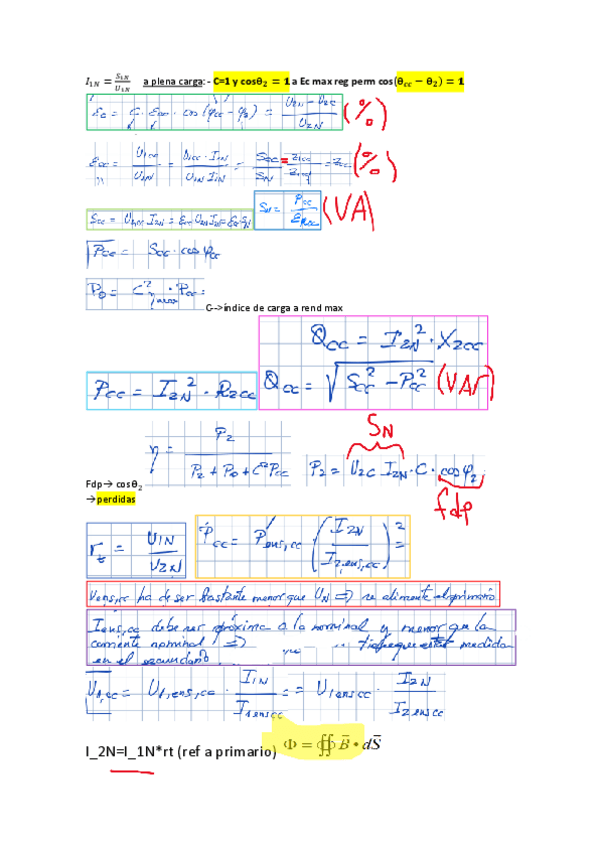 I₁N = S₁N / U₁N a plena carga: - C=1 y cosθ₂ = 1 a Ec max reg perm cos(θcc − θ₂) = 1
Ec = C · Ecc · cos(φcc − φ₂) = (U₂N − U₂c) / U₂N (%)
Ecc = U₁cc / U₁N = U₁cc · I₁N / U₁N I₁N = Scc / SN = Z₁cc / = Zcc (%)
Scc = U₁cc I₁N = Ecc U₁N I₁N = Ecc SN SN = Pcc / ERcc (VA)
Pcc = Scc · cos φcc
P₀ = C²ηmax · Pcc
C-->índice de carga a rend max
Qcc = I₂N² · X₂cc
Pcc = I₂N² · R₂cc Qcc = √(Scc² − Pcc²) (VAr)
SN
η = P₂ / (P₂ + P₀ + C² Pcc) P₂ = U₂c I₂N · C · cos φ₂
Fdp→ cosθ₂
fdp
→perdidas
rt = U₁N / U₂N Pcc = Pens,cc (I₂N / I₂,ens,cc)² =
Uens,cc ha de ser bastante menor que UN => se alimenta el primario
Iens,cc debe ser próxima a la nominal y menor que la
corriente nominal => que medida
en el secundario
U₁,cc = U₁,ens,cc · I₁N / I₁enscc = = U₁enscc · I₂N / I₂enscc
I_2N=I_1N*rt (ref a primario) Φ = ∯ B̄ • dS̄